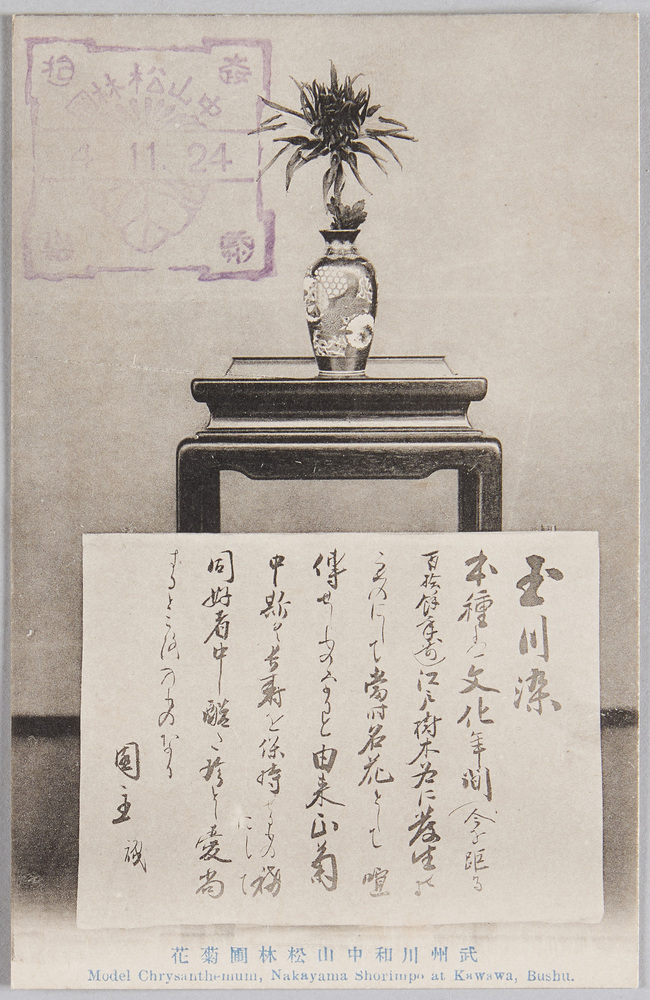 中山松林
11.24
玉川染
本種は文化年間(今を距る
百拾餘年前)江戸樹木谷に發生せ
るものにして當時名花として喧
傳せしものなりと由来正菊
中斯く長壽を保持するもの稀にして
同好者中 珍とし愛尚
するところのものなり
園主 識
武州川和中山松林圃菊花
Model Chrysanthemum, Nakayama Shorimpo at Kawawa, Bushu.